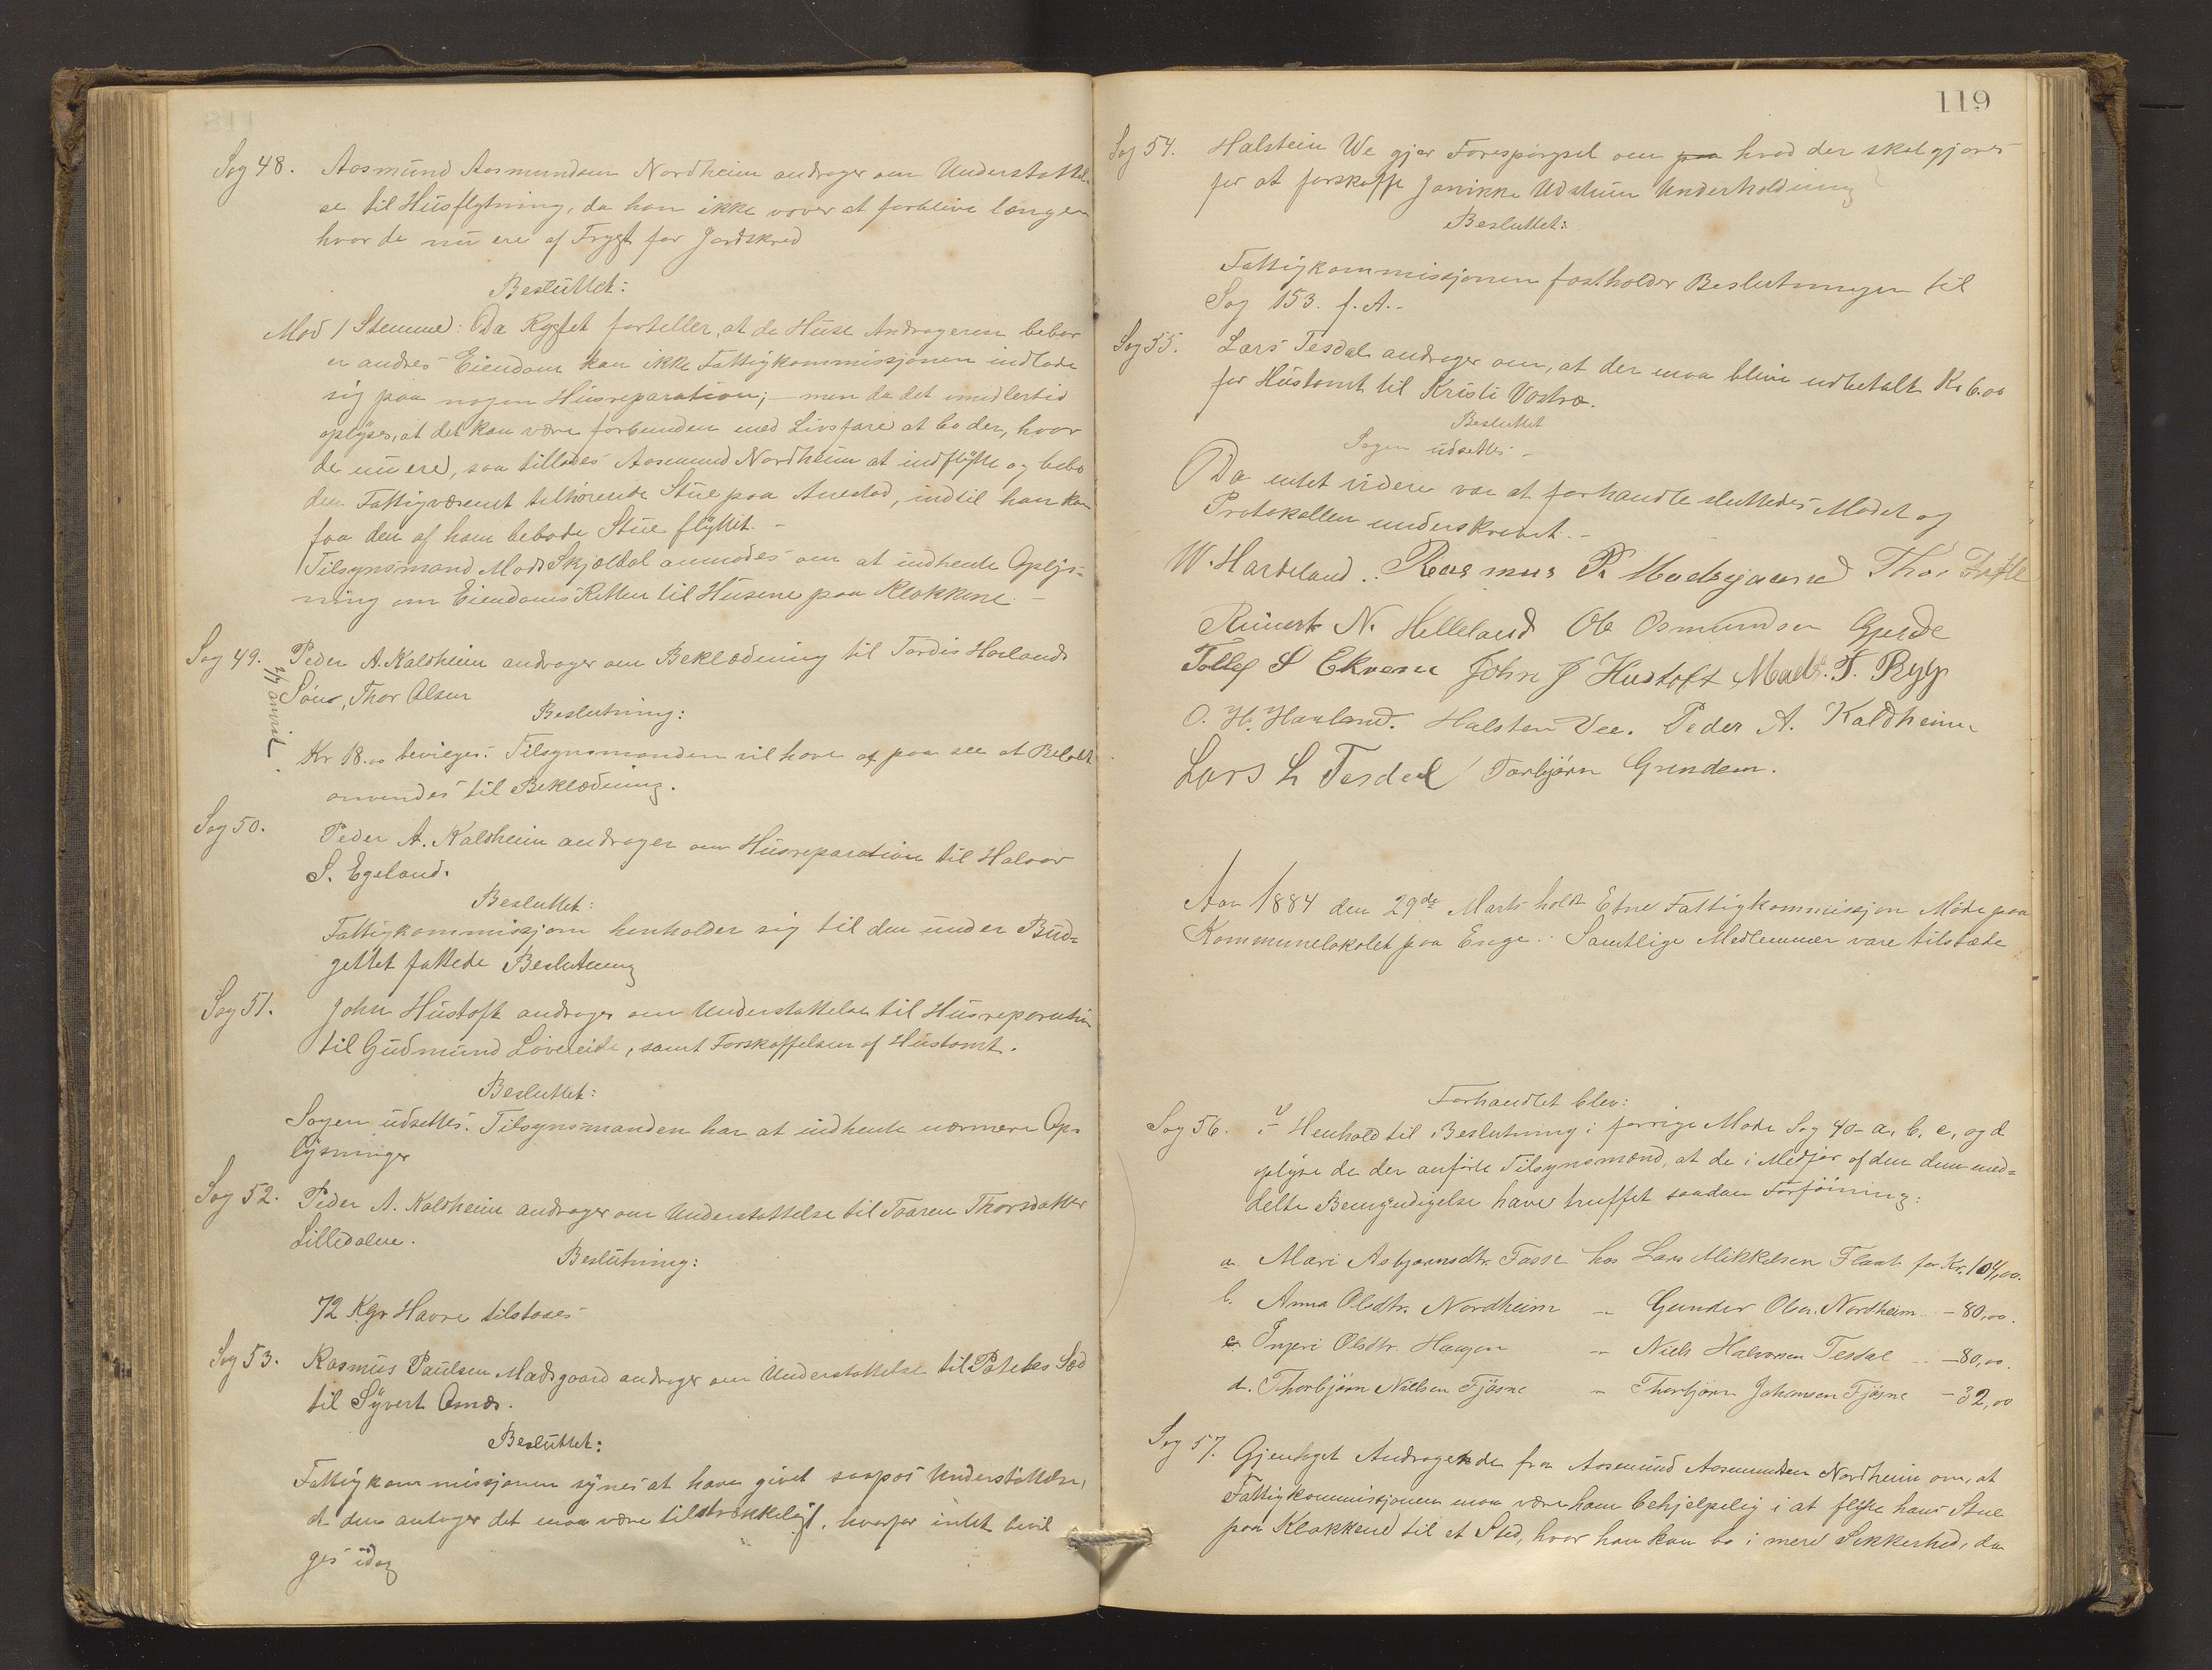 Sag 48. Aasmund Aasmundsen Nordheim andrager om Understøttel-
se til Husflytning, da han ikke vover at forblive længer
hvor de nu ere af Frygt for Jordskred
Besluttet:
Mod 1 Stemme: Da Rygtet forteller, at de Huse Andrageren bebor
er andres Eiendom kan ikke Fattigkommissjonen indlade
sig paa nogen Husreparation; – men da det imidlertid
oplyses, at det kan være forbunden med Livsfare at bo der, hvor
de nu ere, saa tillades Aasmund Nordheim at indflytte og bebo
den Fattigvæsenet tilhørende Stue paa Anestad, indtil han kan
faa den af ham bebode Stue flyttet. –
Tilsynsmand Mads Skjøldal anmodes om at indhente Oplys-
ning om Eiendoms Retten til Husene paa Klokkene. –
Sag 49. Peder A. Kaldheim andrager om Beklædning til Tordis Hovlands
Søn, Thor Olsen
Beslutning:
anvist.
Kr 18.00 bevilges. Tilsynsmanden vil have at paa see at Beløbet
anvendes til Beklædning.
Sag 50. Peder A. Kaldheim andrager om Husreparation til Halvor
S. Egeland.
Besluttet:
Fattigkommissjonen henholder sig til den under Bud-
gettet fattede Beslutning
Sag 51. John Hustoft andrager om Understøttelse til Husreparation
til Gudmund Løvereide, samt Forskaffelsen af Hustomt.
Besluttet:
Sagen udsettes. Tilsynsmanden har at indhente nærmere Op-
lysninger
Sag 52. Peder A. Kaldheim andrager om Understøttelse til Taaren Thorsdatter
Lilledalen.
Beslutning:
72 Kgr Havre tilstaaes
Sag 53. Rasmus Paulsen Madsgaard andrager om Understøttelse til Potetes Sæd
til Syvert Amds.
Besluttet:
Fattigkommissjonen synes at have givet saapas Understøttelse,
at den antager det maa være tilstrækkeligt, hvorfor intet bevil
ges idag
119
Sag 54. Halstein We gjør Forespørgsel om paa hvad der skal gjøres
for at forskaffe Jannikke Udstuen Underholdning
Besluttet:
Fattigkommissjonen fastholder Beslutningen til
Sag 153. f. A. –
Sag 55. Lars Tesdal andrager om, at der maa blive udbetalt Kr 6.00
for Hustomt til Kristi Vaatra.
Besluttet
Sagen udsettes. –
Da intet videre var at forhandle sluttedes Mødet og
Protokollen underskrevet. –
W. Hardeland. Rasmus P. Madsgaard Thor Fatle
Reinert N. Helleland Ole Osmundsen Gjerde
Tollef S Ekrene John J Hustoft Mads. T. Ryg
O. H. Havland. Halsten Vee. Peder A. Kaldheim
Lars L Tesdal Torbjørn Grindem.
Aar 1884 den 29de Marts holdt Etne Fattigkommissjon Møde paa
Kommunelokalet paa Enge. Samtlige Medlemmer vare tilstæde
Forhandlet blev:
Sag 56. I Henhold til Beslutning i forrige Møde Sag 40 – a, b, c, og d
oplyse de der anførte Tilsynsmænd, at de i Medfør af den dem med-
delte Bemyndigelse have truffet saadan Forføining:
a. Mari Asbjørnsdtr. Fosse hos Lars Mikkelsen Flaat for Kr. 104,00.
b. Anna Olsdtr. Nordheim – Gunder Olsen Nordheim – 80,00.
c. Ingeri Olsdtr. Haugen – Niels Halvorsen Tesdal – 80,00.
d. Thorbjørn Nielsen Tjøsne – Thorbjørn Johannesen Tjøsne – 32,00
Sag 57. Gjentaget Andragende fra Aasmund Aasmundsen Nordheim om, at
Fattigkommissjonen maa være ham behjelpelig i at flytte hans Stue
paa Klokkene til et Sted, hvor han kan bo i mere Sikkerhed, da